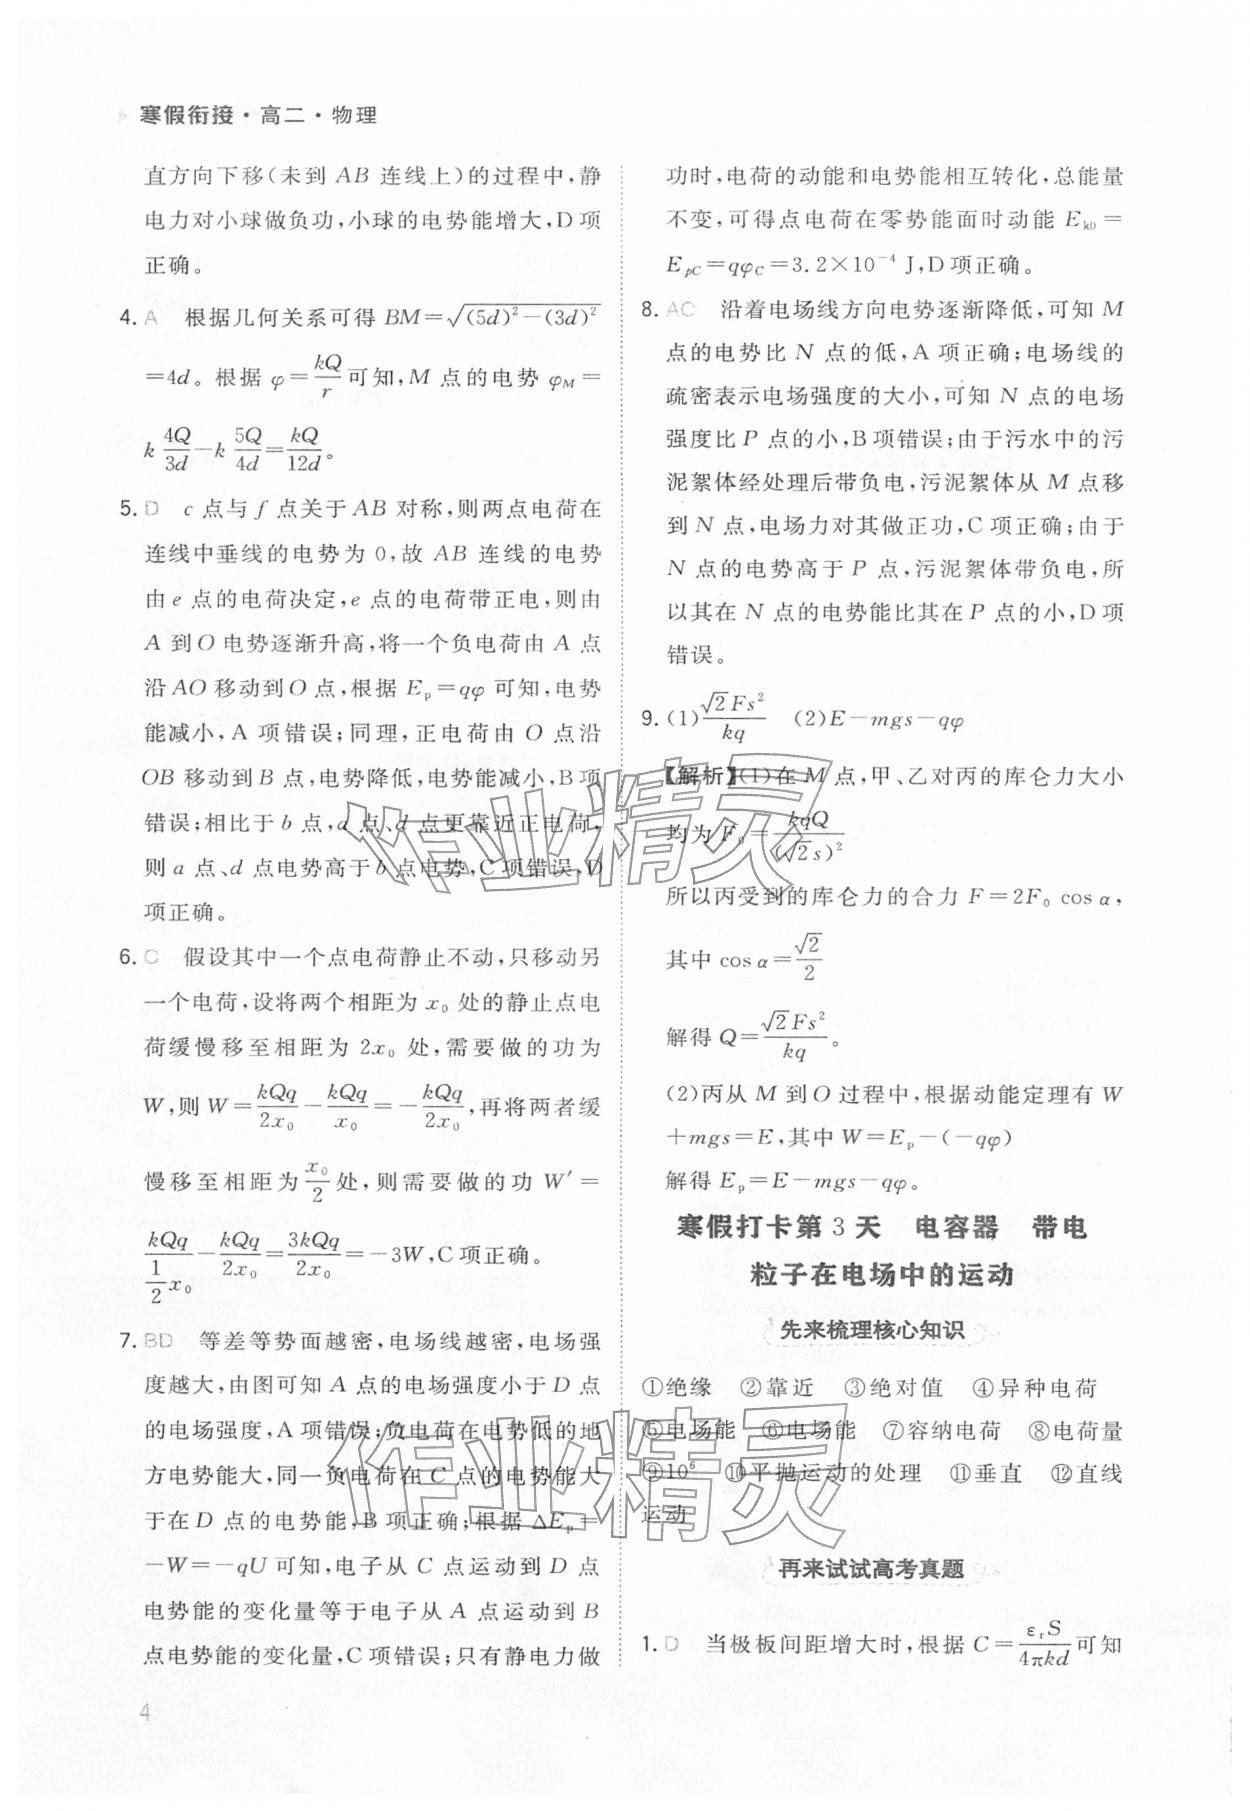 寒假衔接·高二·物理
直方向下移(未到 AB 连线上)的过程中,静
电力对小球做负功,小球的电势能增大,D项
正确。
4. A 根据几何关系可得 BM=√((5d)²-(3d)²)
=4d。根据 φ=kQ/r 可知,M 点的电势 φ_M=
k 4Q/3d-k 5Q/4d=kQ/12d。
5. D c 点与 f 点关于 AB 对称,则两点电荷在
连线中垂线的电势为 0,故 AB 连线的电势
由 e 点的电荷决定,e 点的电荷带正电,则由
A 到 O 电势逐渐升高,将一个负电荷由 A 点
沿 AO 移动到 O 点,根据 E_p=qφ 可知,电势
能减小,A 项错误;同理,正电荷由 O 点沿
OB 移动到 B 点,电势降低,电势能减小,B项
错误;相比于 b 点,a 点、d 点更靠近正电荷,
则 a 点、d 点电势高于 b 点电势,C 项错误,D
项正确。
6. C 假设其中一个点电荷静止不动,只移动另
一个电荷,设将两个相距为 x₀ 处的静止点电
荷缓慢移至相距为 2x₀ 处,需要做的功为
W,则 W=kQq/2x₀-kQq/x₀=-kQq/2x₀,再将两者缓
慢移至相距为 x₀/2 处,则需要做的功 W′=
kQq/(1/2 x₀)-kQq/2x₀=3kQq/2x₀=-3W,C项正确。
7. BD 等差等势面越密,电场线越密,电场强
度越大,由图可知 A 点的电场强度小于 D 点
的电场强度,A 项错误;负电荷在电势低的地
方电势能大,同一负电荷在 C 点的电势能大
于在 D 点的电势能,B 项正确;根据 ΔE_p=
-W=-qU 可知,电子从 C 点运动到 D 点
电势能的变化量等于电子从 A 点运动到 B
点电势能的变化量,C项错误;只有静电力做
4
功时,电荷的动能和电势能相互转化,总能量
不变,可得点电荷在零势能面时动能 E_k0=
E_pC=qφ_C=3.2×10⁻⁴ J,D 项正确。
8. AC 沿着电场线方向电势逐渐降低,可知 M
点的电势比 N 点的低,A 项正确;电场线的
疏密表示电场强度的大小,可知 N 点的电场
强度比 P 点的小,B项错误;由于污水中的污
泥絮体经处理后带负电,污泥絮体从 M 点移
到 N 点,电场力对其做正功,C 项正确;由于
N 点的电势高于 P 点,污泥絮体带负电,所
以其在 N 点的电势能比其在 P 点的小,D项
错误。
9. (1)√2Fs²/kq (2)E-mgs-qφ
【解析】(1)在 M 点,甲、乙对丙的库仑力大小
均为 F₀=kqQ/(√2s)²
所以丙受到的库仑力的合力 F=2F₀ cos α,
其中 cos α=√2/2
解得 Q=√2Fs²/kq。
(2)丙从 M 到 O 过程中,根据动能定理有 W
+mgs=E,其中 W=E_p-(-qφ)
解得 E_p=E-mgs-qφ。
寒假打卡第 3 天 电容器 带电
粒子在电场中的运动
先来梳理核心知识
①绝缘 ②靠近 ③绝对值 ④异种电荷
⑤电场能 ⑥电场能 ⑦容纳电荷 ⑧电荷量
⑨10⁶ ⑩平抛运动的处理 ⑪垂直 ⑫直线
运动
再来试试高考真题
1. D 当极板间距增大时,根据 C=ε_rS/4πkd 可知
作业精灵
作业精灵